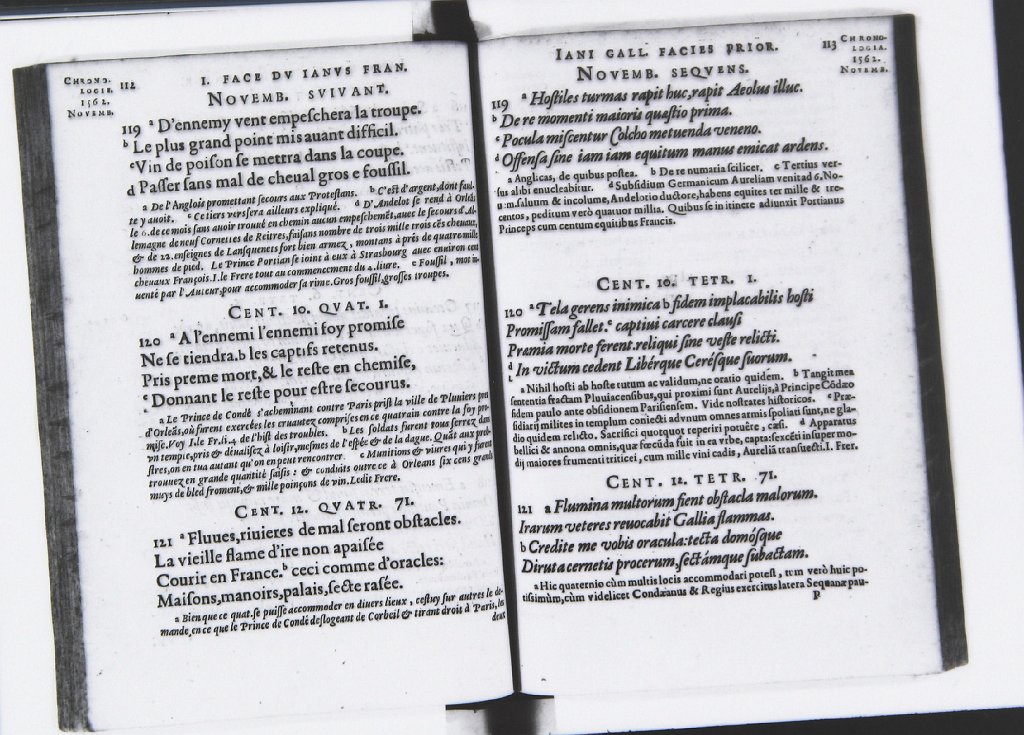 CHRONO-
LOGIE.
1562.
NOVEMB.
112
I. FACE DV IANVS FRAN.
NOVEMB. SVIVANT.
119 ᵃ D'ennemy vent empeſchera la troupe.
ᵇ Le plus grand point mis auant difficil.
ᶜ Vin de poiſon ſe mettra dans la coupe.
d Paſſer ſans mal de cheual gros e fouſſil.
a De l'Anglois promettant ſecours aux Proteſtans. b C'eſt d'argent, dont faul-
te y auoit. c Ce tiers vers ſera ailleurs expliqué. d D'Andelot ſe rend à Orleã
le 6. de ce mois ſans auoir trouué en chemin aucun empeſchemẽt, auec le ſecours d'Al-
lemagne de neuf Cornettes de Reitres, faiſans nombre de trois mille trois cẽs cheuaux,
& de 22. enſeignes de Lanſquenets fort bien armez, montans à pres de quatre mille
hommes de pied. Le Prince Portian ſe ioint à eux à Strasbourg auec enuiron cent
cheuaux François. I. le Frere tout au commencement du 4. liure. e Fouſſil, mot in-
uenté par l'Auteur, pour accommoder ſa rime. Gros fouſſil, groſſes troupes.
CENT. 10. QVAT. I.
120 ᵃ A l'ennemi l'ennemi foy promiſe
Ne ſe tiendra. b les captifs retenus.
Pris preme mort, & le reſte en chemiſe,
ᶜ Donnant le reſte pour eſtre ſecourus.
a Le Prince de Condé s'acheminant contre Paris priſt la ville de Pluuiers pres
d'Orleãs, où furent exercées les cruautez compriſes en ce quatrain contre la foy pro-
miſe. Voy I. le Fr. li. 4. de l'hiſt. des troubles. b Les ſoldats furent tous ſerrez dans
vn temple, pris & deualiſez à loiſir, meſmes de l'eſpée & de la dague. Quãt aux preb-
ſtres, on en tua autant qu'on en peut rencontrer. c Munitions & viures qui y furent
trouuez en grande quantité ſaiſis: & conduits outre ce à Orleans ſix cens grands
muys de bled froment, & mille poinçons de vin. Ledit Frere.
CENT. 12. QVATR. 71.
121 ᵃ Fluues, riuieres de mal ſeront obſtacles.
La vieille flame d'ire non apaiſée
Courir en France. ᵇ ceci comme d'oracles:
Maiſons, manoirs, palais, ſecte raſée.
a Bien que ce quat. ſe puiſſe accommoder en diuers lieux, ceſtuy ſur autres le de-
mande, en ce que le Prince de Condé deſlogeant de Corbeil & tirant droit à Paris, les
deux
IANI GALL. FACIES PRIOR.
113
CHRONO-
LOGIA.
1562.
NOVEMB.
NOVEMB. SEQVENS.
119 ᵃ Hoſtiles turmas rapit huc, rapit Aeolus illuc.
ᵇ De re momenti maioris quæſtio prima.
ᶜ Pocula miſcentur Colcho metuenda veneno.
ᵈ Offenſa ſine iam iam equitum manus emicat ardens.
a Anglicas, de quibus poſtea. b De re numaria ſcilicet. c Tertius ver-
ſus alibi enucleabitur. d Subſidium Germanicum Aureliam venit ad 6. No-
u m. ſaluum & incolume, Andelotio ductore, habens equites ter mille & tre-
centos, peditum verò quatuor millia. Quibus ſe in itinere adiunxit Portianus
Princeps cum centum equitibus Francis.
CENT. 10. TETR. I.
120 ᵃ Tela gerens inimica b fidem implacabilis hoſti
Promiſſam fallet. ᶜ captiui carcere clauſi
Præmia morte ferent. reliqui ſine veſte relicti.
ᵈ In victum cedent Libérque Cerésque ſuorum.
a Nihil hoſti ab hoſte tutum ac validum, ne oratio quidem. b Tangit mea
ſententia fractam Pluuiacenſibus, qui proximi ſunt Aurelijs, à Principe Cõdæo
fidem paulo ante obſidionem Pariſienſem. Vide noſtrates hiſtoricos. c Præ-
ſidiarij milites in templum coniecti ad vnum omnes armis ſpoliati ſunt, ne gla-
dio quidem relicto. Sacrifici quotquot reperiri potuêre, cæſi. d Apparatus
bellici & annona omnis, quæ fœcũda fuit in ea vrbe, capta: ſexcẽti inſuper mo-
dij maiores frumenti triticei, cum mille vini cadis, Aureliã tranſuecti. I. Frer.
CENT. 12. TETR. 71.
121 a Flumina multorum fient obſtacla malorum.
Irarum veteres reuocabit Gallia flammas.
b Credite me vobis oracula: tecta domóſque
Diruta cernetis procerum, ſectámque ſubactam.
a Hic quaternio cùm multis locis accommodari poteſt, tum verò huic po-
tiſsimùm, cùm videlicet Condæanus & Regius exercitus latera Sequanæ pau-
P